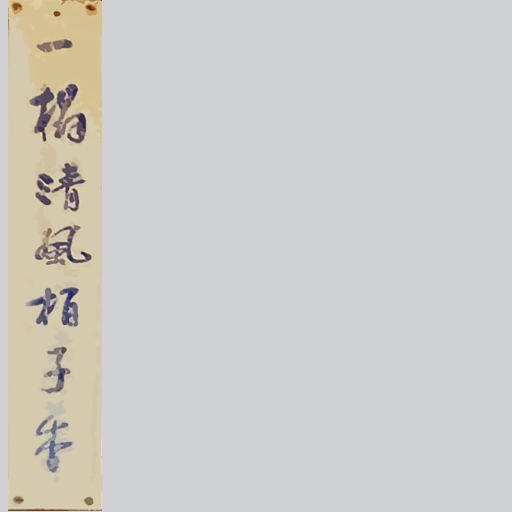 一榻清風柏子香